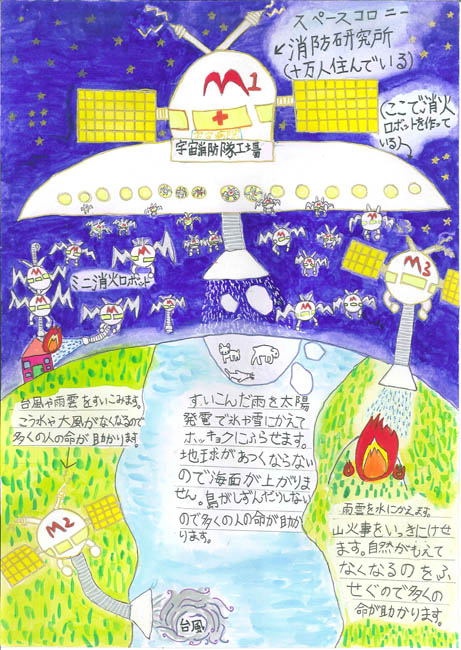 スペースコロニー
消防研究所
(十万人住んでいる)
M1
(ここで消火
ロボットを作って
いる)
宇宙消防隊工場
ミニ消火ロボット
M3
台風や雨雲をすいこみます。
こう水や大風がなくなるので
多くの人の命が助かります。
すいこんだ雨を太陽
発電で氷や雪にかえて
ホッキョクにふらせます。
地球があつくならない
ので海面が上がりま
せん。島がしずんだりしない
ので多くの人の命が助か
ります。
雨雲を水にかえます。
山火事をいっきにけせ
ます。自然がもえて
なくなるのをふ
せぐので多くの
命が助かります。
M2
台風